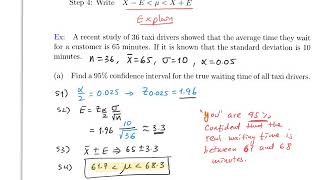 Step 4: Write X̄ − E < μ < X̄ + E
Explain
Ex: A recent study of 36 taxi drivers showed that the average time they wait
for a customer is 65 minutes. If it is known that the standard deviation is 10
minutes. n=36, X̄=65, σ=10, α=0.05
(a) Find a 95% confidence interval for the true waiting time of all taxi drivers.
S1) α/2 = 0.025 → Z0.025 = 1.96
S2) E = Zα/2 σ/√n
= 1.96 10/√36 ≈ 3.3
S3) X̄ ± E ⇒ 65 ± 3.3
S4) 61.7 < μ < 68.3
"You" are 95%
confident that the
real waiting time is
between 61 and 68
minutes.